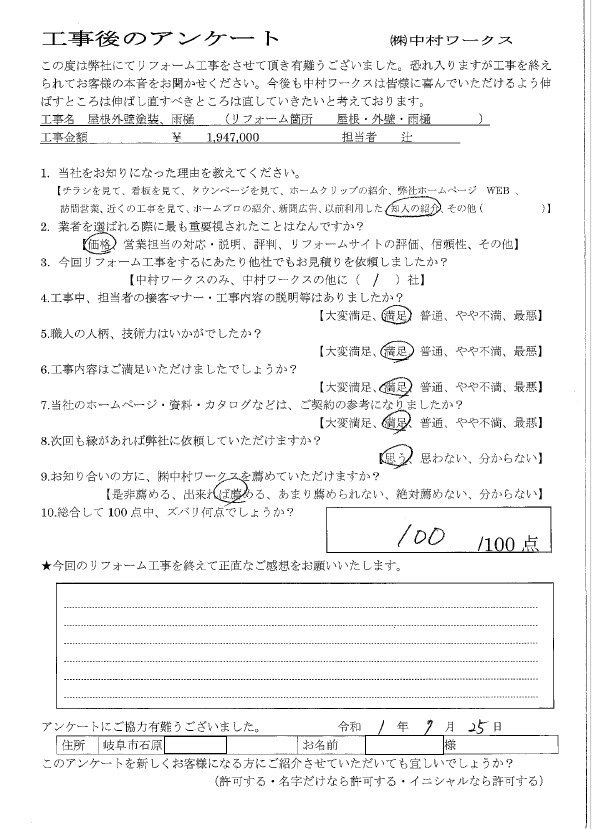 工事後のアンケート　㈱中村ワークス
この度は弊社にてリフォーム工事をさせて頂き有難うございました。恐れ入りますが工事を終え
られてお客様の本音をお聞かせください。今後も中村ワークスは皆様に喜んでいただけるよう伸
ばすところは伸ばし直すべきところは直していきたいと考えております。
工事名　屋根外壁塗装、雨樋　（リフォーム箇所　屋根・外壁・雨樋　）
工事金額　￥　1,947,000　担当者　辻
1. 当社をお知りになった理由を教えてください。
【チラシを見て、看板を見て、タウンページを見て、ホームクリップの紹介、弊社ホームページ　WEB 、
訪問営業、近くの工事を見て、ホームプロの紹介、新聞広告、以前利用した、知人の紹介、その他（　）】
2. 業者を選ばれる際に最も重要視されたことはなんですか？
【価格、営業担当の対応・説明、評判、リフォームサイトの評価、信頼性、その他】
3. 今回リフォーム工事をするにあたり他社でもお見積りを依頼しましたか？
【中村ワークスのみ、中村ワークスの他に（ / ）社】
4.工事中、担当者の接客マナー・工事内容の説明等はありましたか？
【大変満足、満足、普通、やや不満、最悪】
5.職人の人柄、技術力はいかがでしたか？
【大変満足、満足、普通、やや不満、最悪】
6.工事内容はご満足いただけましたでしょうか？
【大変満足、満足、普通、やや不満、最悪】
7.当社のホームページ・資料・カタログなどは、ご契約の参考になりましたか？
【大変満足、満足、普通、やや不満、最悪】
8.次回も縁があれば弊社に依頼していただけますか？
【思う、思わない、分からない】
9.お知り合いの方に、㈱中村ワークスを薦めていただけますか？
【是非薦める、出来れば薦める、あまり薦められない、絶対薦めない、分からない】
10.総合して 100 点中、ズバリ何点でしょうか？
100 /100 点
★今回のリフォーム工事を終えて正直なご感想をお願いいたします。
アンケートにご協力有難うございました。　令和 1 年 7 月 25 日
住所　岐阜市石原　お名前　様
このアンケートを新しくお客様になる方にご紹介させていただいても宜しいでしょうか？
（許可する・名字だけなら許可する・イニシャルなら許可する）